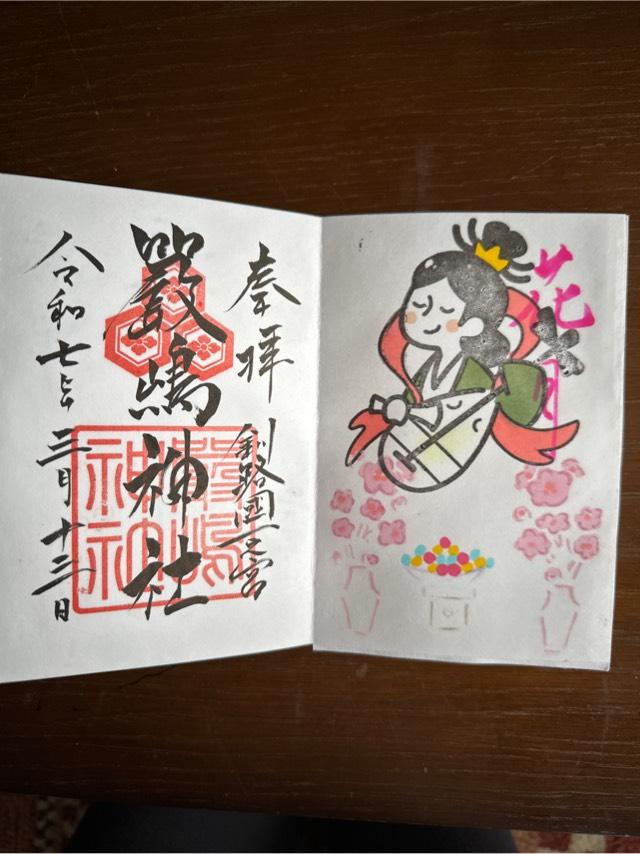 花
奉拝
釧路國一之宮
嚴嶋神社
嚴嶋
神社
令和七年三月十三日